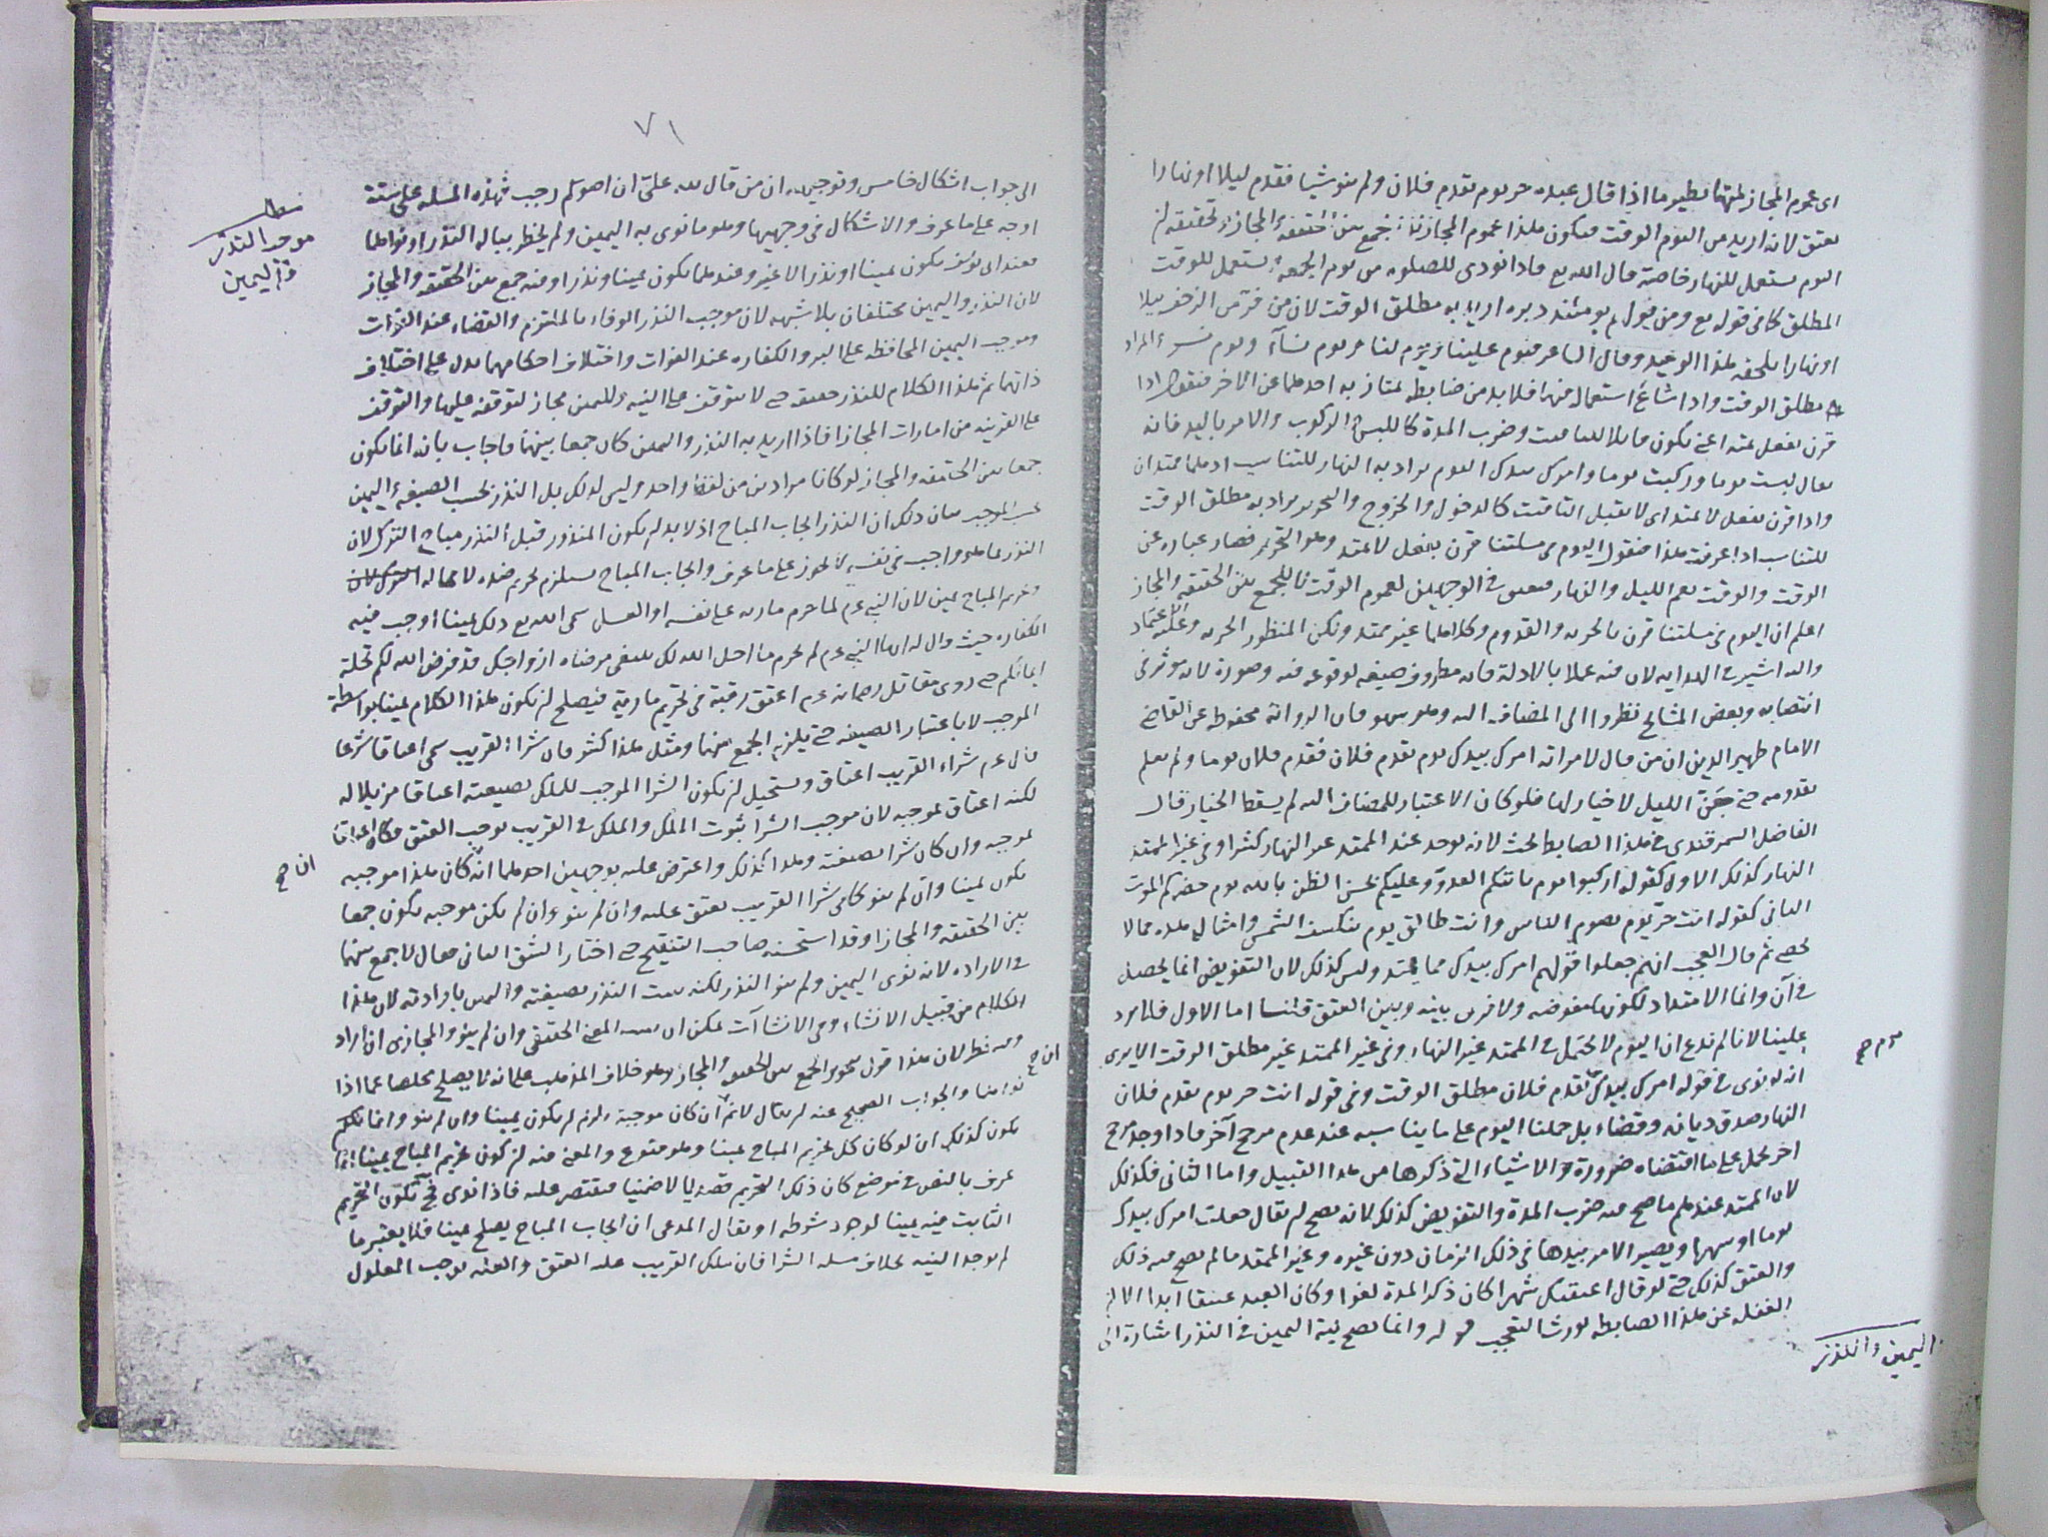 اى عموم المجاز لمتها نظير ما اذا قال عبده حر يوم يقدم فلان ولم ينو شيا فقدم ليلا او نهارا
يعتق لانه اريد من اليوم الوقت فيكون هذا عموم المجاز لا جمع بين الحقيقة والمجاز وتحقيقه ان
اليوم يستعمل للنهار خاصة قال الله تع فاذا نودى للصلوه من يوم الجمعة ويستعمل للوقت
المطلق كما فى قوله تع ومن يولهم يومئذ دبره اريد به مطلق الوقت لان من فر من الزحف ليلا
او نهارا يلحقه هذا الوعيد وقال الشاعر فيوم علينا ويوم لنا ويوم نسآء ويوم نسر والمراد
مطلق الوقت واذا شاع استعماله فيهما فلا بد من ضابطه يمتاز به احدهما عن الاخر فنقول اذا
قرن بفعل يمتد اعنى يكون قابلا للتاقيت وضرب المدة كاللبس والركوب والامر باليد فانه
يقال لبست يوما وركبت يوما وامرك بيدك اليوم يراد به النهار للتناسب اذ هما ممتدان
واذا قرن بفعل لا يمتد اى لا يقبل التاقيت كالدخول والخروج والتحرير يراد به مطلق الوقت
للتناسب اذا عرفت هذا فنقول اليوم فى مسئلتنا قرن بفعل لا يمتد وهو التحرير فصار عباره عن
الوقت والوقت يعم الليل والنهار فيعتق فى الوجهين لعموم الوقت لا للجمع بين الحقيقه والمجاز
اعلم ان اليوم فى مسئلتنا قرن بالحريه والقدوم وكلاهما غير ممتد ولكن المنظور الحريه وعليه الاعتماد
واليه اشير فى الهدايه لان فيه عملا بالادلة فانه مظروف صيغه لوقوعه فيه وصورة لانه موثر فى
انتصابه وبعض المشائخ نظروا الى المضاف اليه وهو سهو فان الروايه محفوظه عن القاضى
الامام ظهير الدين ان من قال لامراته امرك بيدك يوم يقدم فلان فقدم فلان يوما ولم يعلم
بقدومه حتى جن الليل لا خيار لها فلو كان الاعتبار للمضاف اليه لم يسقط الخيار قال
الفاضل السمرقندى فى هذا الضابط بحث لانه يوجد عند الممتد غير النهار كثيرا وفى غير الممتد
النهار كذلك الاول كقوله اركبوا يوم ياتيكم العدو وعليكم بحسن الظن بالله يوم حضركم الموت
الثانى كقوله انت حر يوم يصوم الناس وانت طالق يوم ينكسف الشمس وامثال هذه مما لا
يحصى ثم قال العجب انهم جعلوا قولهم امرك بيدك مما يمتد وليس كذلك لان التفويض انما يحصل
فى آن وانما الامتداد لكونها مفوضه ولا فرق بينه وبين العتق قلنا اما الاول فلا يرد
علينا لانا لم ندع ان اليوم لا يحتمل فى الممتد غير النهار وفى غير الممتد غير مطلق الوقت الا يرى
انه لو نوى فى قوله امرك بيدك يوم يقدم فلان مطلق الوقت وفى قوله انت حر يوم يقدم فلان
النهار صدق ديانه وقضاء بل حملنا اليوم على ما يناسبه عند عدم مرجح آخر فاذا وجد مرجح
اخر يحمل على ما اقتضاه ضرورة والاشياء التى ذكرها من هذا القبيل واما الثانى فكذلك
لان الممتد عندهم ما صح فيه ضرب المدة والتفويض كذلك لانه يصح ان يقال جعلت امرك بيدك
يوما او شهرا ويصير الامر بيدها فى ذلك الزمان دون غيره وغير الممتد ما لم يصح فيه ذلك
والعتق كذلك حتى لو قال اعتقتك شهرا كان ذكر المدة لغوا وكان العبد عتيقا ابدا الا ان
الغفله عن هذا الضابطه يورث التعجب قوله وانما يصح نية اليمين فى النذر اشارة الى
اليمين والنذر
٧١
الى جواب اشكال خامس وتوجيهه ان من قال لله على ان اصوم رجب فهذه المسله على ستة
اوجه على ما عرف والاشكال فى وجهيها وهو ما نوى به اليمين ولم يخطر بباله النذر او نواهما
فعند ابى يوسف يكون يمينا او نذرا لا غير وعندهما يكون يمينا ونذرا وفيه جمع بين الحقيقه والمجاز
لان النذر واليمين مختلفان بلا شبهه لان موجب النذر الوفاء بالملتزم والقضاء عند الفوات
وموجب اليمين المحافظه على البر والكفاره عند الفوات واختلاف احكامهما يدل على اختلاف
ذاتهما ثم هذا الكلام للنذر حقيقه حتى لا يتوقف على النيه ولليمين مجاز لتوقفه عليها والتوقف
على القرينه من امارات المجاز فاذا اريد به النذر واليمين كان جمعا بينهما فاجاب بانه انما يكون
جمعا بين الحقيقه والمجاز لو كانا مرادين من لفظ واحد وليس كذلك بل النذر بحسب الصيغه واليمين
بحسب الموجب بيان ذلك ان النذر ايجاب المباح اذ لا بد ان يكون المنذور قبل النذر مباح الترك لان
النذر بما هو واجب فى نفسه لا يجوز على ما عرف وايجاب المباح يستلزم تحريم ضده لا محاله
وتحريم المباح يمين لان النبى عم لما حرم ماريه على نفسه او العسل سمى الله تع ذلك يمينا اوجب فيه
الكفاره حيث قال يا ايها النبى عم لم تحرم ما احل الله لك تبتغى مرضاه ازواجك قد فرض الله لكم تحلة
ايمانكم حتى روى مقاتل انه عم اعتق رقبة فى تحريم مارية فيصلح ان يكون هذا الكلام يمينا بواسطة
الموجب لا باعتبار الصيغه حتى يلزم الجمع بينهما ومثل هذا كثير فان شراء القريب سمى اعتاقا شرعا
قال عم شراء القريب اعتاق ويستحيل ان يكون الشرا الموجب للملك بصيغته اعتاقا مزيلا له
لكنه اعتاق بموجبه لان موجب الشرا ثبوت الملك والملك فى القريب يوجب العتق فكان اعتاقا
بموجبه وان كان شرا بصيغته وهذا كذلك واعترض عليه بوجهين احدهما انه ان كان هذا موجبه
يكون يمينا وان لم ينو كما فى شرا القريب يعتق عليه وان لم ينو وان لم يكن موجبه يكون جمعا
بين الحقيقه والمجاز وقد استحسنه صاحب التنقيح حتى اختار الشق الثانى فقال لا جمع بينهما
فى الاراده لانه نوى اليمين ولم ينو النذر لكنه يثبت النذر بصيغته واليمين بارادته لان هذا
الكلام من قبيل الانشاء وفى الانشاآت يمكن ان يثبت المعنى الحقيقى وان لم ينو والمجازى ان اراد
وفيه نظر لان هذا قول بتجويز الجمع بين الحقيقه والمجاز وهو خلاف المذهب على انه لا يصلح مخلصا عما اذا
نواهما والجواب الصحيح عنه ان يقال لا نم ان كان موجبه يلزم ان يكون يمينا وان لم ينو وانما
يكون كذلك ان لو كان كل تحريم المباح يمينا وهو ممنوع والمعنى فيه ان كون تحريم المباح يمينا انما
عرف بالنص فى موضع كان ذلك التحريم قصديا لا ضمنيا فيقتصر عليه فاذا نوى فح يكون التحريم
الثابت فيه يمينا لوجود شرطه او يقال المدعى ان ايجاب المباح يصلح يمينا فلا يعتبر ما
لم يوجد النيه بخلاف مسله الشرا فان ملك القريب عله العتق والعله يوجب المعلول
مطلب
موجب النذر
واليمين
ان صح
ان صح
يوم صح